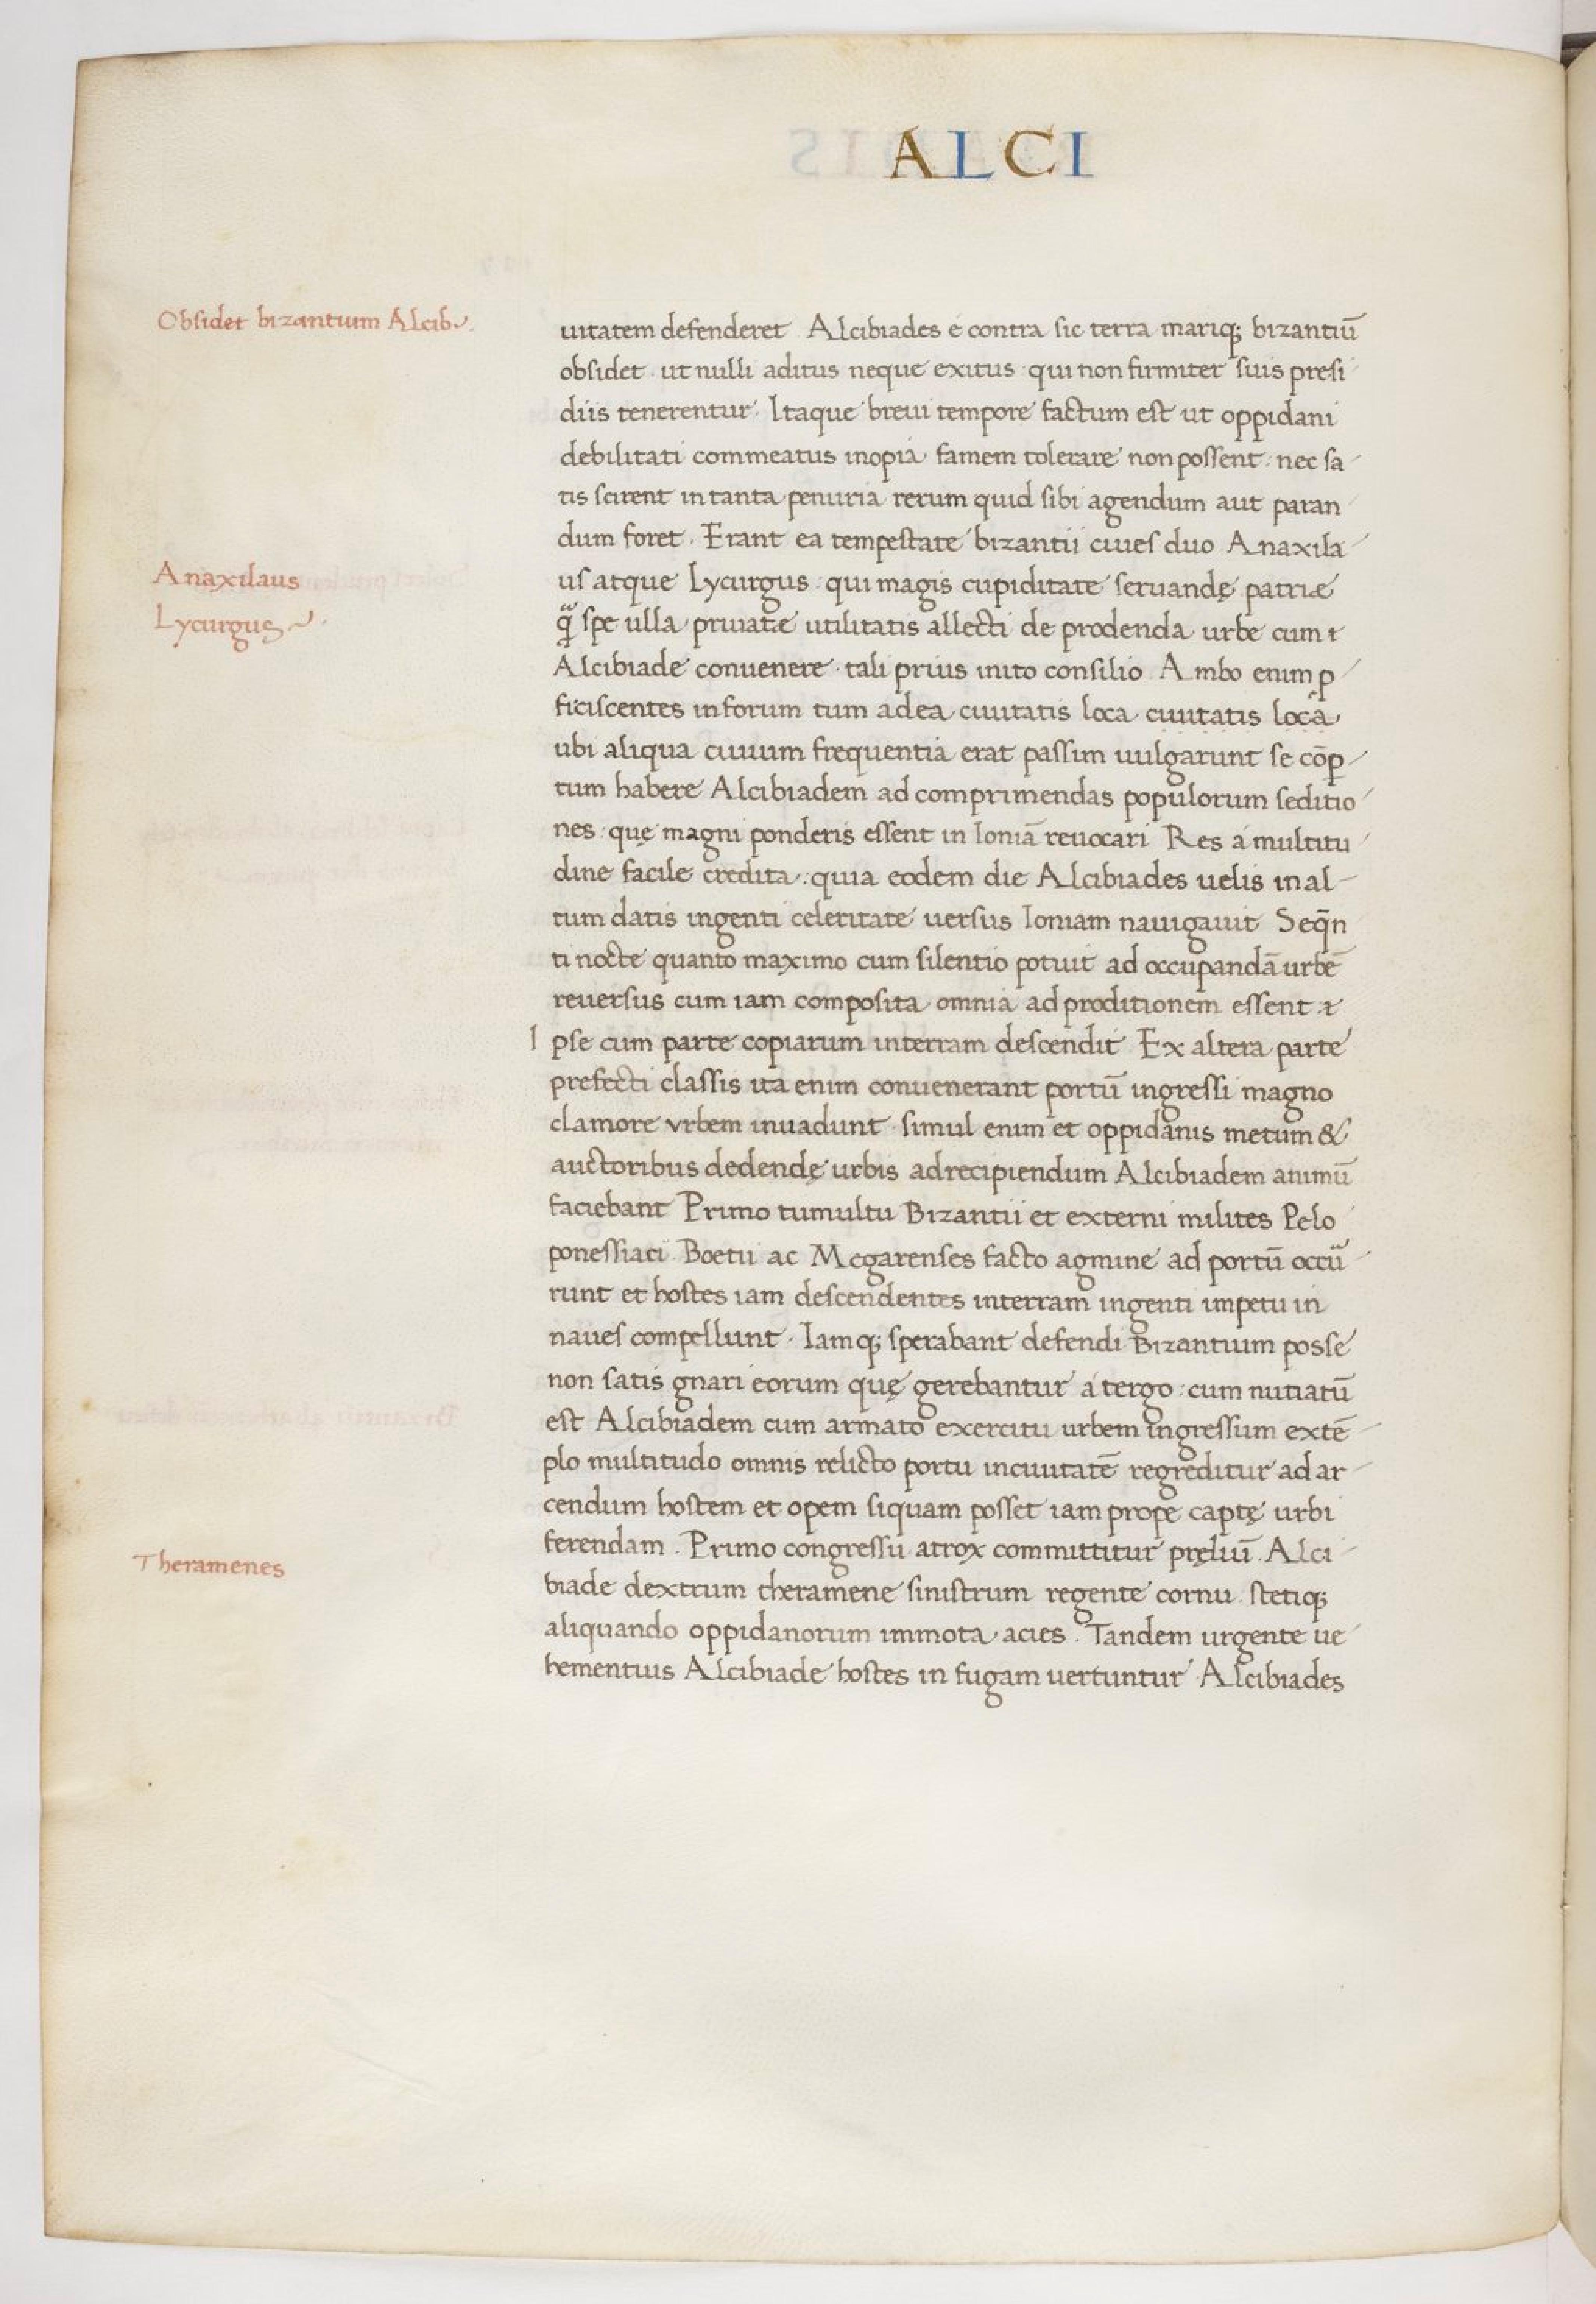 ALCI
Obsidet bizantium Alcib.
uitatem defenderet Alcibiades e contra sic terra mariq; bizantiū
obsidet · ut nulli aditus neque exitus · qui non firmiter suis presi
diis tenerentur. Itaque breui tempore factum est ut oppidani
debilitati commeatus inopia famem tolerare non possent : nec sa
tis scirent in tanta penuria rerum quid sibi agendum aut paran
dum foret. Erant ea tempestate bizantii ciues duo Anaxila
Anaxilaus
us atque Lycurgus : qui magis cupiditate seruandę patriæ
Lycurgus
q̃ spe ulla priuatæ utilitatis allecti de prodenda urbe cum
Alcibiade conuenere · tali prius inito consilio Ambo enim ꝓ
ficiscentes in forum tum ad ea ciuitatis loca ciuitatis loca
ubi aliqua ciuium frequentia erat passim uulgarunt se cōꝑ
tum habere Alcibiadem ad comprimendas populorum seditio
nes : quę magni ponderis essent in Ioniā reuocari Res a multitu
dine facile credita : quia eodem die Alcibiades uelis in al
tum datis ingenti celeritate uersus Ioniam nauigauit Seq̄n
ti nocte quanto maximo cum silentio potuit ad occupandā urbē
reuersus cum iam composita omnia ad proditionem essent
Ipse cum parte copiarum in terram descendit Ex altera parte
prefecti classis ita enim conuenerant portū ingressi magno
clamore vrbem inuadunt · simul enim et oppidanis metum &
auctoribus dedendę urbis ad recipiendum Alcibiadem animū
faciebant Primo tumultu Bizantii et externi milites Pelo
ponessiaci Boetii ac Megarenses facto agmine ad portū occũ
runt et hostes iam descendentes in terram ingenti impetu in
naues compellunt · Iamq; sperabant defendi Bizantium posse
non satis gnari eorum quę gerebantur a tergo : cum nutiatū
est Alcibiadem cum armato exercitu urbem ingressum extē
plo multitudo omnis relicto portu in ciuitatē regreditur ad ar
cendum hostem et opem siquam posset iam prope captę urbi
ferendam . Primo congressu atrox committitur pręliū . Alci
Theramenes
biade dextrum theramene sinistrum regente cornu · stetiq;
aliquando oppidanorum immota acies . Tandem urgente ue
hementius Alcibiade hostes in fugam uertuntur Alcibiades